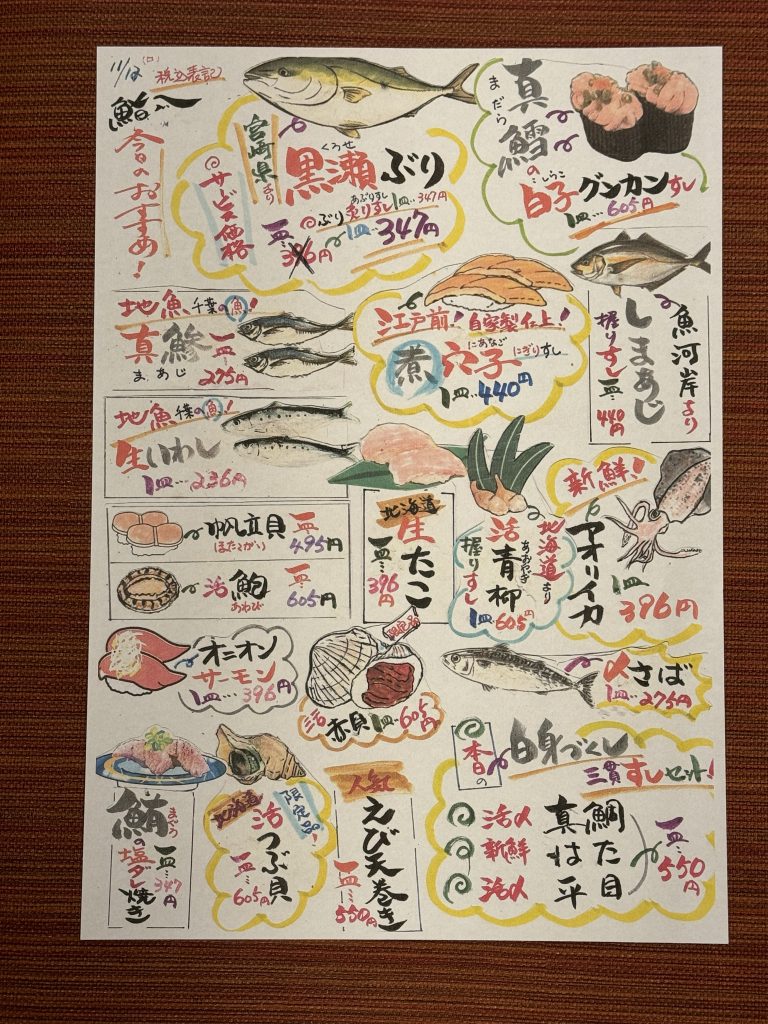 11/12(日) 税込表記
鮨へ
今日のおすすめ!
宮崎県より
サービス価格
くろせ
黒瀬ぶり
あぶりすし
ぶり炙りすし1皿…347円
一皿…396円
1皿…347円
まだら
真鱈の
しらこ
白子グンカンすし
1皿…605円
地魚 千葉の魚!
真鯵 一皿…
まあじ 275円
江戸前!自家製仕上!
にあなご
煮穴子 にぎりすし
1皿…440円
魚河岸より
しまあじ
握りすし一皿…440円
地魚 千葉の魚!
生いわし
1皿…236円
帆立貝 一皿…
ほたてがい 495円
活鮑 一皿…
あわび 605円
北海道
生たこ
一皿…396円
北海道より
あおやぎ
活青柳
握りすし 1皿…605円
新鮮!
アオリイカ
1皿…396円
オニオン
サーモン
1皿…396円
限定品
活赤貝1皿…605円
〆さば
1皿…275円
まぐろ
鮪の塩ダレ焼き
一皿…347円
限定品!
北海道
活つぶ貝
一皿…605円
人気
えび天巻き
一皿…550円
本日の
白身づくし
三貫すしセット!
活〆 真鯛
新鮮 はた目
活〆 平
一皿…550円